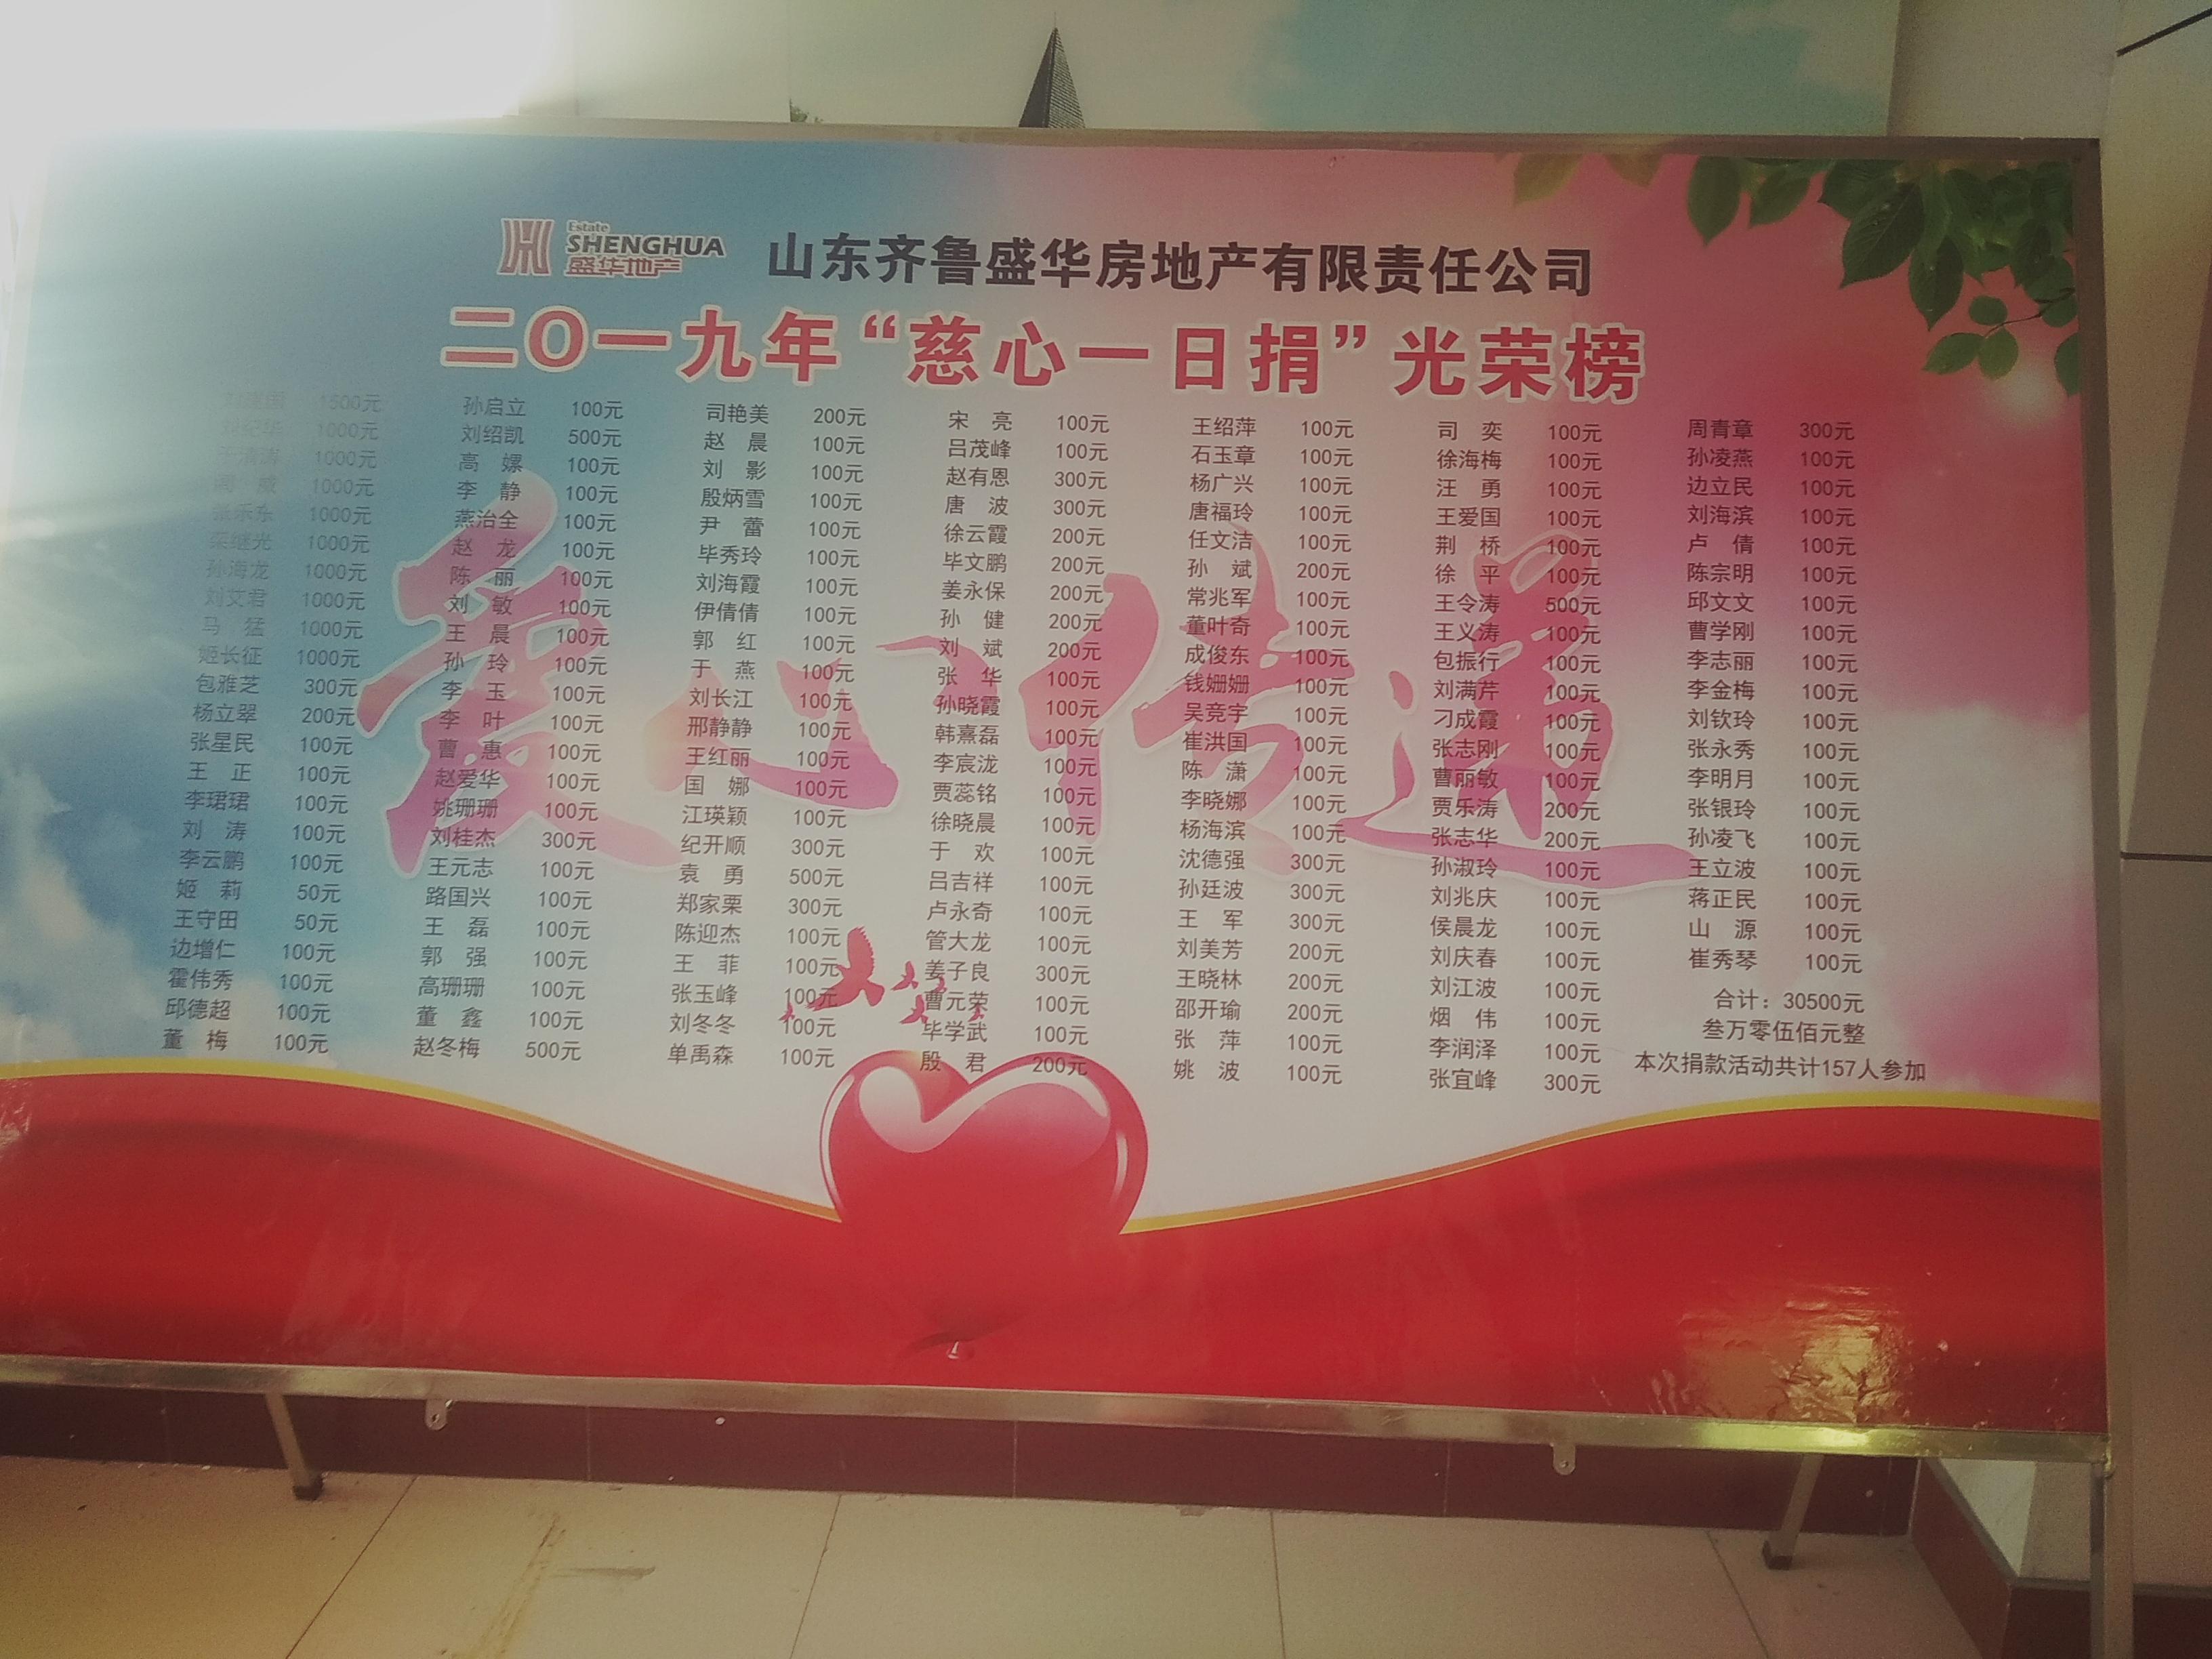 Estate
SHENGHUA
盛华地产
山东齐鲁盛华房地产有限责任公司
二〇一九年“慈心一日捐”光荣榜
爱心传递
1500元
1000元
1000元
威 1000元
张乐东 1000元
栾继光 1000元
孙海龙 1000元
刘艾君 1000元
马 猛 1000元
姬长征 1000元
包雅芝 300元
杨立翠 200元
张星民 100元
王 正 100元
李珺珺 100元
刘 涛 100元
李云鹏 100元
姬 莉 50元
王守田 50元
边增仁 100元
霍伟秀 100元
邱德超 100元
董 梅 100元
孙启立 100元
刘绍凯 500元
高 嫘 100元
李 静 100元
燕治全 100元
赵 龙 100元
陈 丽 100元
刘 敏 100元
王 晨 100元
孙 玲 100元
李 玉 100元
李 叶 100元
曹 惠 100元
赵爱华 100元
姚珊珊 100元
刘桂杰 300元
王元志 100元
路国兴 100元
王 磊 100元
郭 强 100元
高珊珊 100元
董 鑫 100元
赵冬梅 500元
司艳美 200元
赵 晨 100元
刘 影 100元
殷炳雪 100元
尹 蕾 100元
毕秀玲 100元
刘海霞 100元
伊倩倩 100元
郭 红 100元
于 燕 100元
刘长江 100元
邢静静 100元
王红丽 100元
国 娜 100元
江瑛颖 100元
纪开顺 300元
袁 勇 500元
郑家栗 300元
陈迎杰 100元
王 菲 100元
张玉峰 100元
刘冬冬 100元
单禹森 100元
宋 亮 100元
吕茂峰 100元
赵有恩 300元
唐 波 300元
徐云霞 200元
毕文鹏 200元
姜永保 200元
孙 健 200元
刘 斌 200元
张 华 100元
孙晓霞 100元
韩熹磊 100元
李宸泷 100元
贾蕊铭 100元
徐晓晨 100元
于 欢 100元
吕吉祥 100元
卢永奇 100元
管大龙 100元
姜子良 300元
曹元荣 100元
毕学武 100元
殷 君 200元
王绍萍 100元
石玉章 100元
杨广兴 100元
唐福玲 100元
任文洁 100元
孙 斌 200元
常兆军 100元
董叶奇 100元
成俊东 100元
钱姗姗 100元
吴竞宇 100元
崔洪国 100元
陈 潇 100元
李晓娜 100元
杨海滨 100元
沈德强 300元
孙廷波 300元
王 军 300元
刘美芳 200元
王晓林 200元
邵开瑜 200元
张 萍 100元
姚 波 100元
司 奕 100元
徐海梅 100元
汪 勇 100元
王爱国 100元
荆 桥 100元
徐 平 100元
王令涛 500元
王义涛 100元
包振行 100元
刘满芹 100元
刁成霞 100元
张志刚 100元
曹丽敏 100元
贾乐涛 200元
张志华 200元
孙淑玲 100元
刘兆庆 100元
侯晨龙 100元
刘庆春 100元
刘江波 100元
烟 伟 100元
李润泽 100元
张宜峰 300元
周青章 300元
孙凌燕 100元
边立民 100元
刘海滨 100元
卢 倩 100元
陈宗明 100元
邱文文 100元
曹学刚 100元
李志丽 100元
李金梅 100元
刘钦玲 100元
张永秀 100元
李明月 100元
张银玲 100元
孙凌飞 100元
王立波 100元
蒋正民 100元
山 源 100元
崔秀琴 100元
合计：30500元
叁万零伍佰元整
本次捐款活动共计157人参加